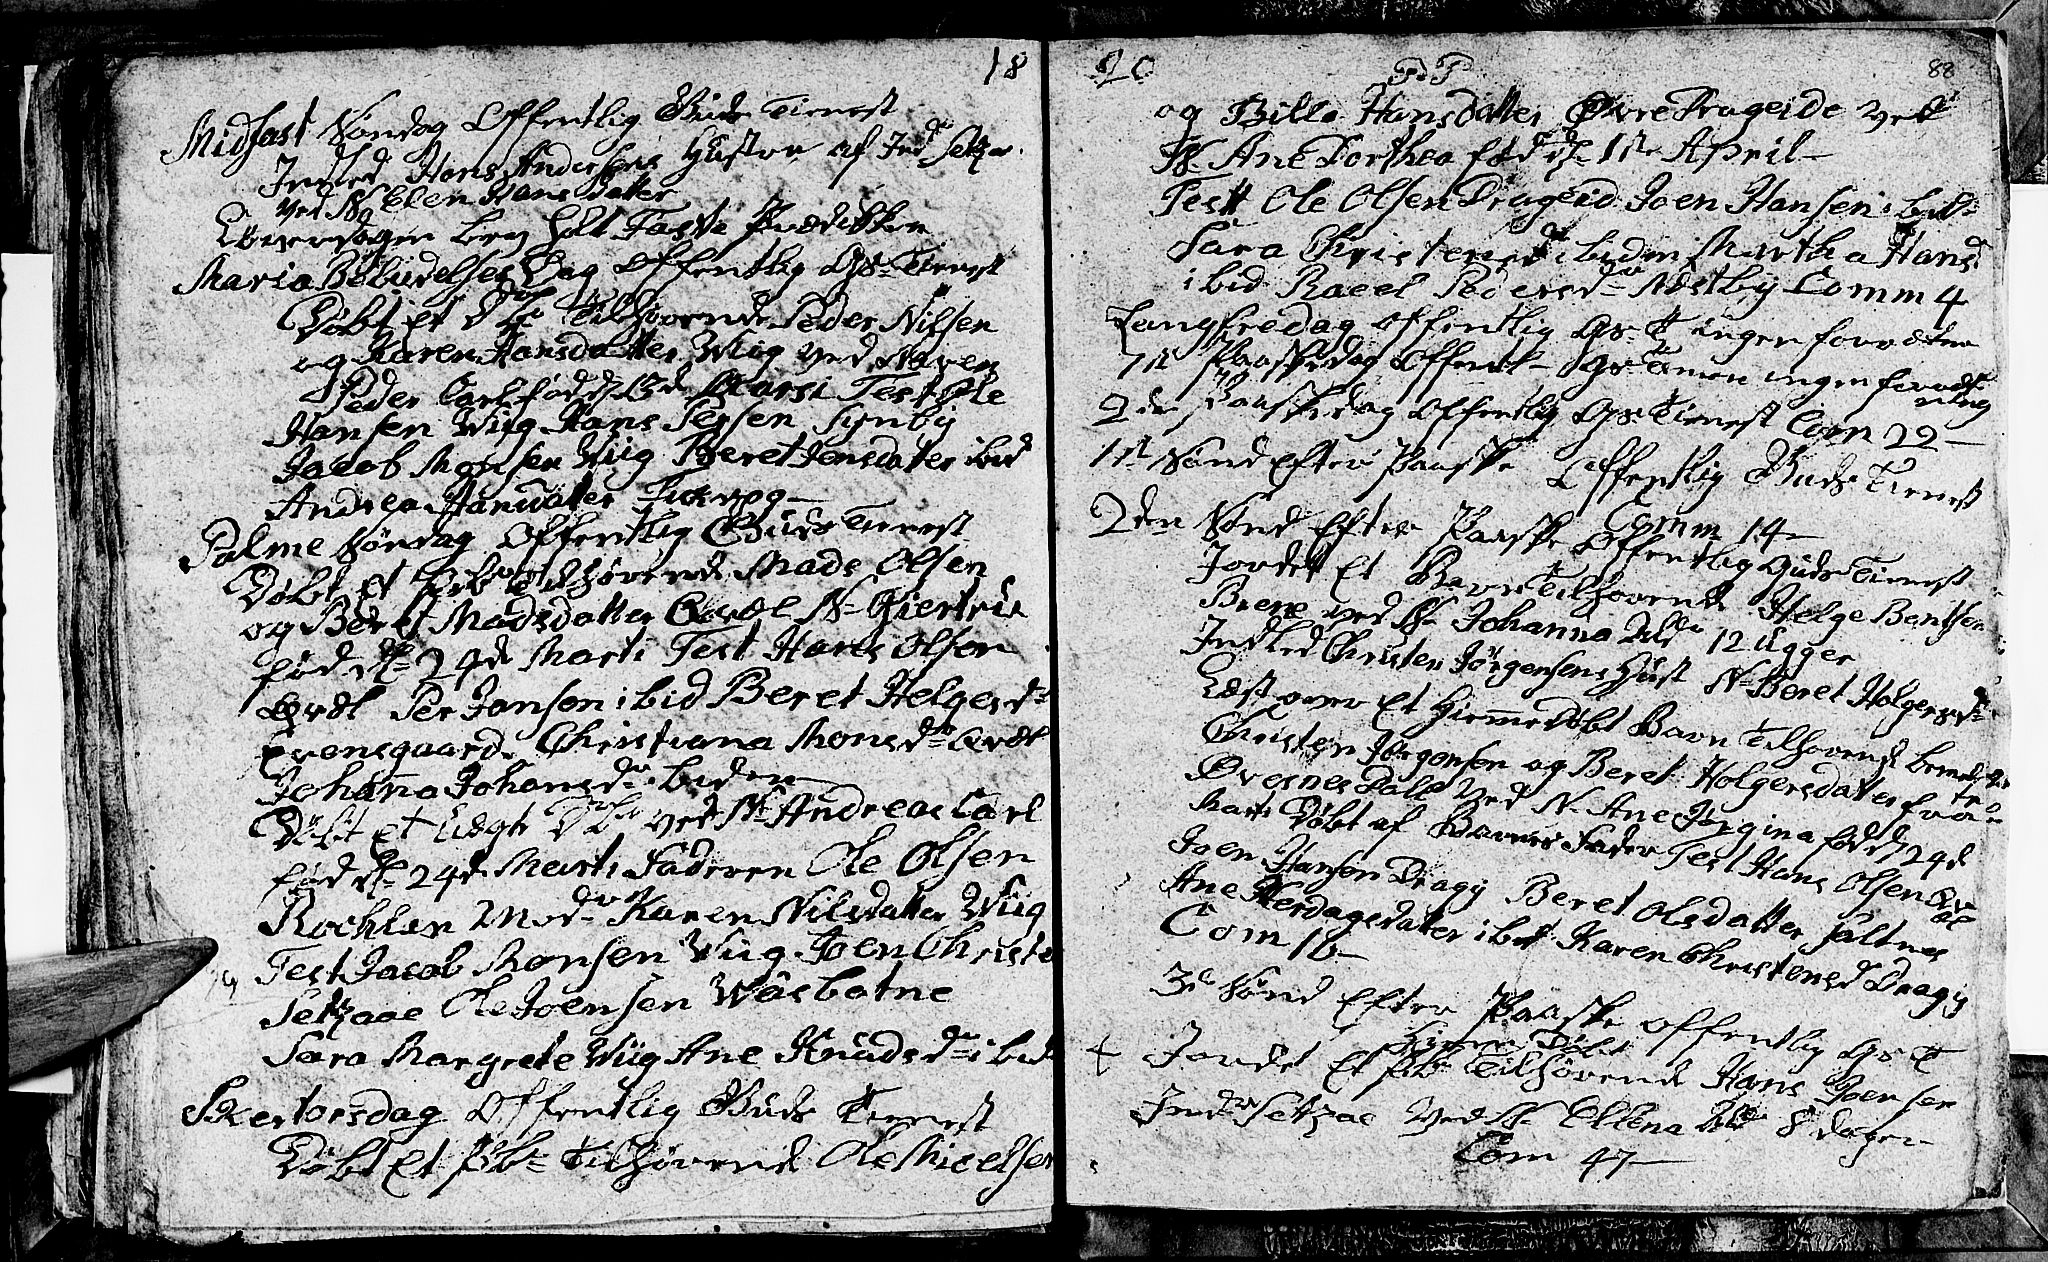 18
Midfast Søndag Offentlig Guds Tienest
Indled Hans Andersens Hustroe af Indr Setzaa
ved N Elen Hans Datter
Løverdagen
Maria Bebudelses Dag Offentlig Gs Tienest
Døbt Et Tilhørende Peder Nilsen
og Karen Hansdatter Wiig ved Navn
Peder Carl fød Marti Test Ole
Hansen Wiig Hans Synby
Jacob Monsen Wiig Beret Jonsdatter ibid
Andrea Hansdatter
Palme Søndag Offentlig Guds Tienest
Døbt Et Tilhørende Mads Olsen
og Beret Madsdatter N Giertrue
fød d 24d Marti Test Hans Olsen
Per Jonsen ibid Beret Helgesd
Evensgaard Christiana Monsd
Johanna Johansd ibidem
Døbt et Uægte ved N Andreas Carl
fød d 24d Marti Faderen Ole Olsen
Mod Karen Nilsdatter Wiig
Test Jacob Monsen Wiig Joen Christe
Setzaae Ole Joensen Wasbotne
Sara Margrete Wiig Ane Knudsd ibid
Skertorsdag Offentlig Guds Tienest
Døbt Et Tilhørende Ole Micelsen
20
88
og Bille Hansdatter Øvre Drageide ved
N Ane Dorthea fød 11te April
Test Ole Olsen Drageid Joen Hansen ibid
Sara Christensd ibidem Martha Hansd
ibid Raeel Pedersd Næstby Comm 4
Langfredag Offentlig Gs T ingen forrætn
1st Paaskedag Offentl Gs Tienen ingen forrætning
2den Paaskedag Offentlig Gs Tienest Com 22
1st Sønd Efter Paaske Offentlig Guds Tienest
Comm 14
2den Sønd Efter Paaske Offentlig Guds Tienest
Jordet Et Barn Tilhørende Helge Bentsen
ved N Johanna Ald 12 Uger
Indled Christen Jørgensens Hust N Beret Holgersd
Læst over Et Hiemmedøbt Barn Tilhørend
Christen Jørgensen og Beret Holgersdatter fra
Øvesnes Dall ved N Ane Jørgina fød d 24d
Marti Døbt af Barnes Fader Test Hans Olsen
Joen Hansen Dragy Beret Olsdatter Saltnes
Ane Herdagsdatter ibid Karen Christensd Dragy
Com 16
3d Sønd Efter Paaske Offentlig Gs T
Hiemme Døbt
+ Jordet Et Tilhørende Hans Joensen
Indr Setzaae ved N Ellena Ald 8 dager
Com 47